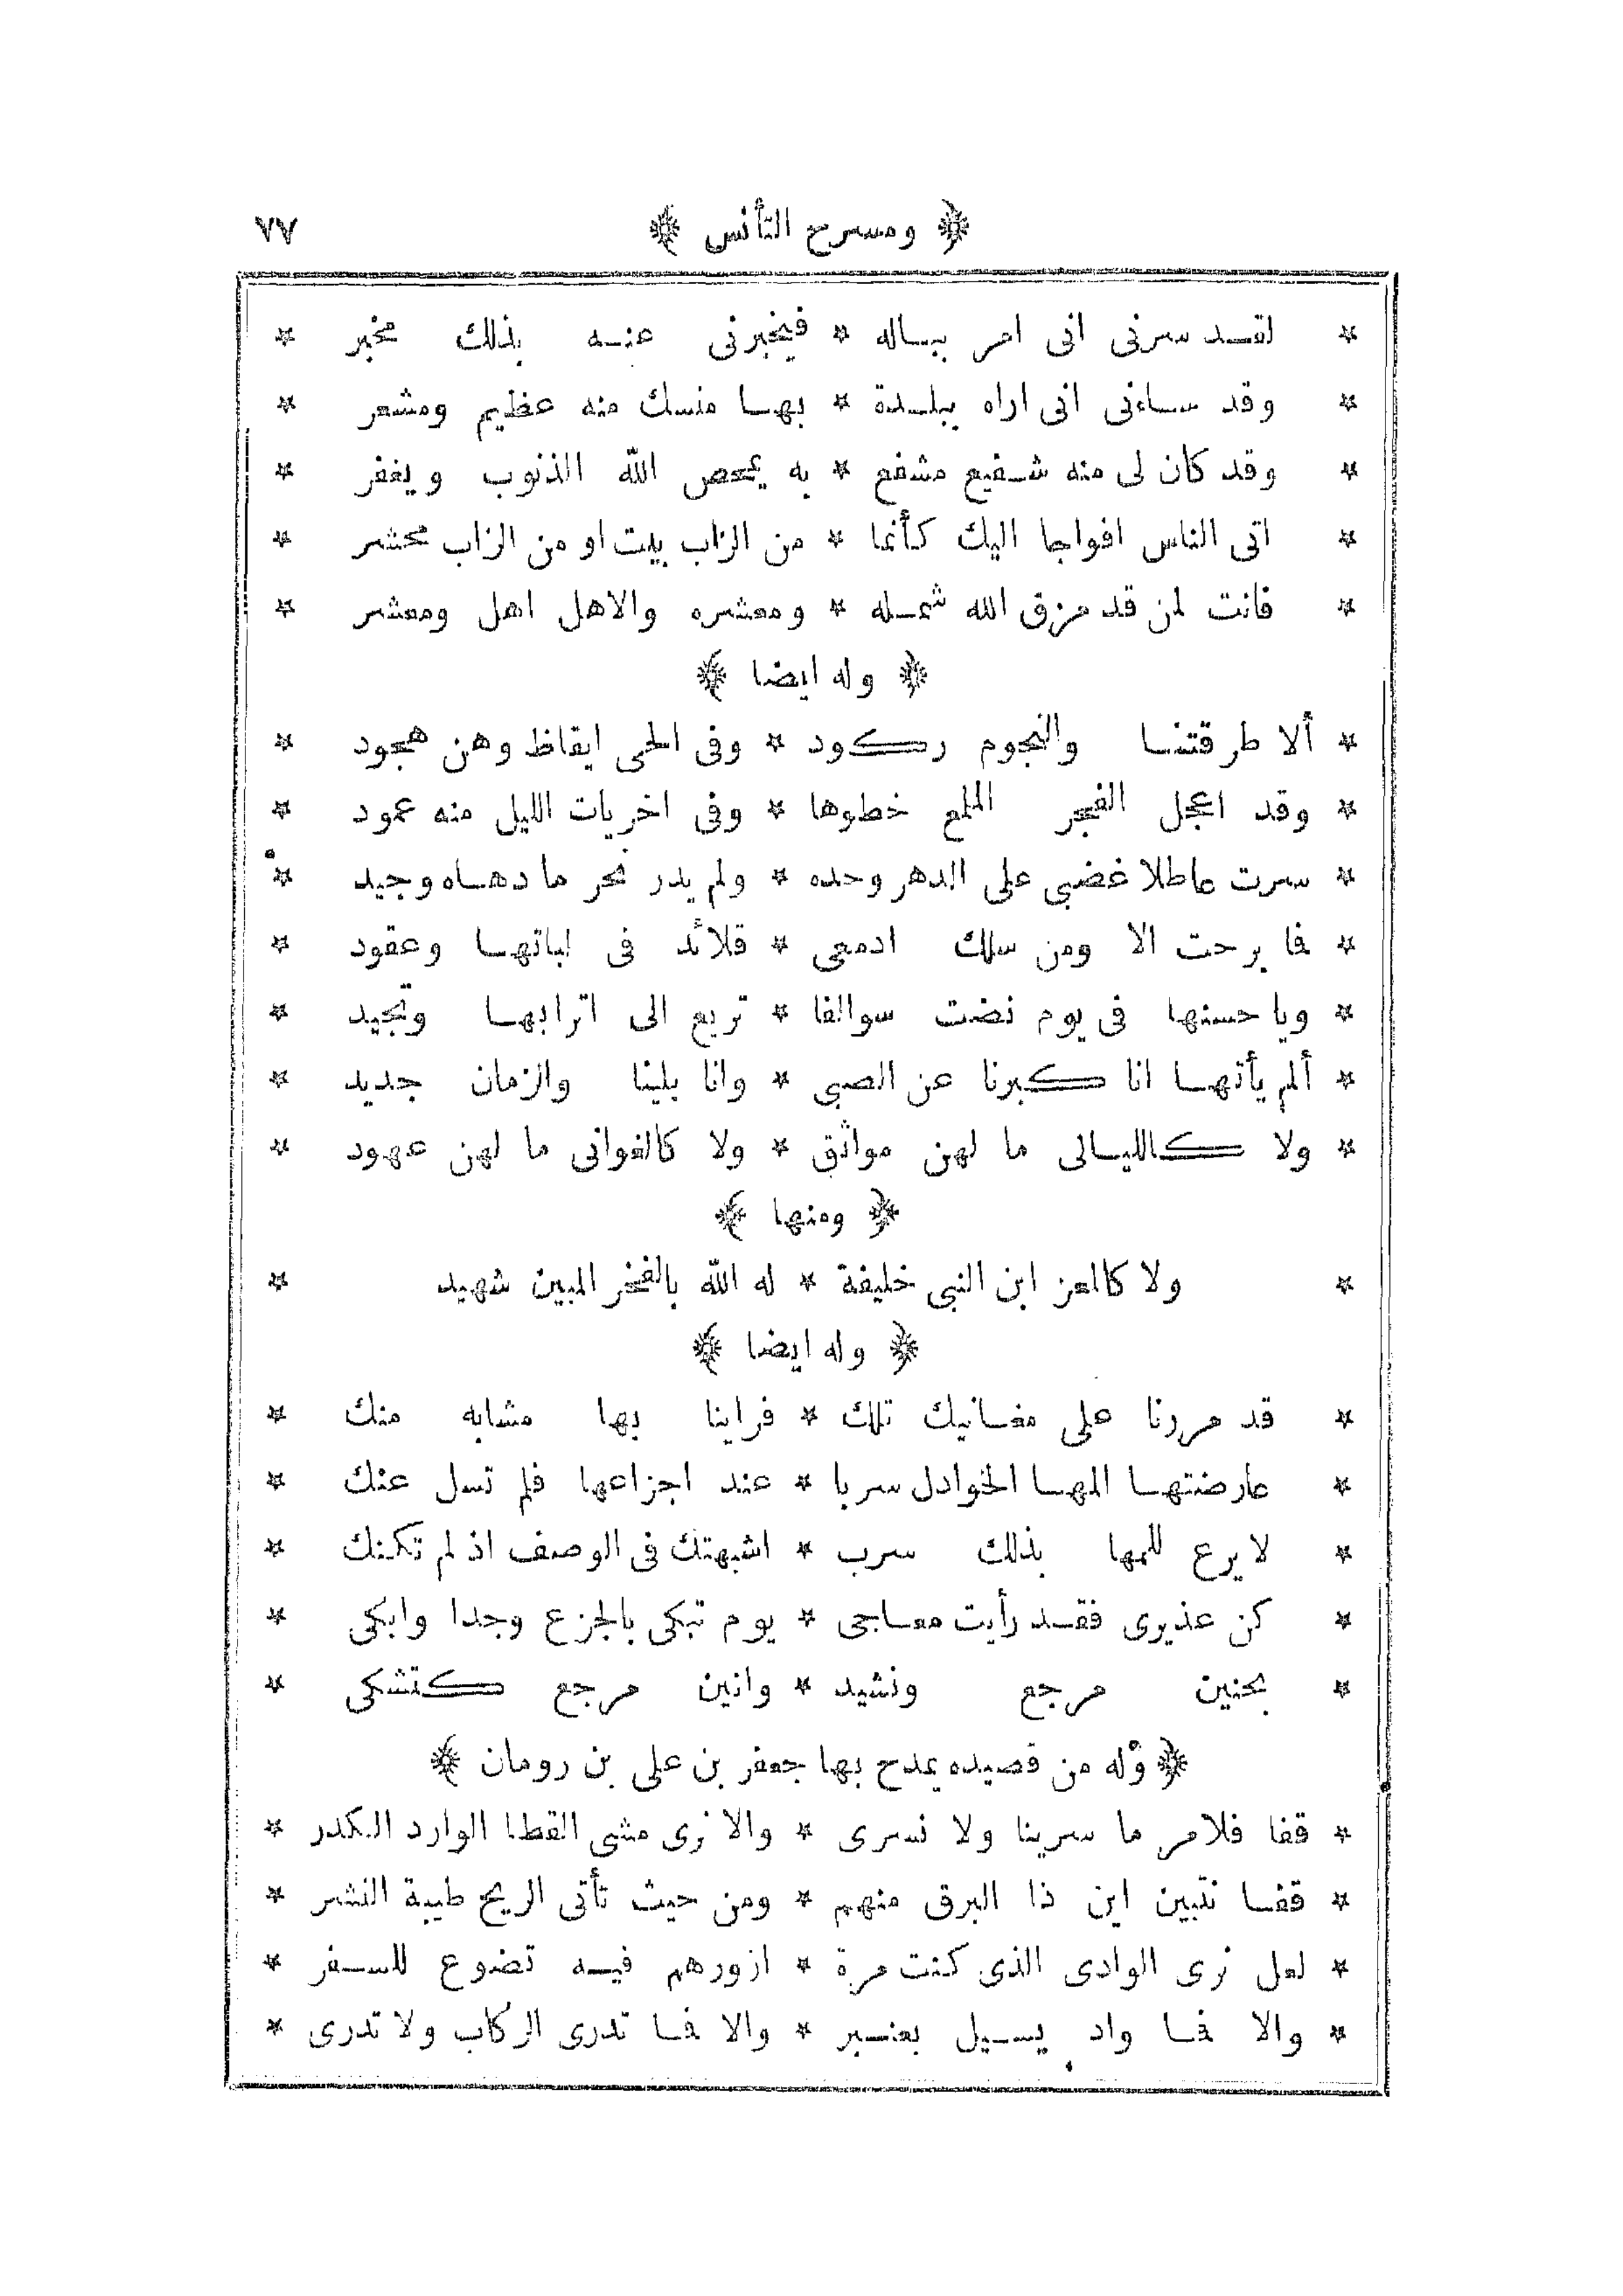 ﴿ ومسرح التأنس ﴾ ٧٧
* لقد سرنى انى امر بباله * فيخبرنى عنه بذلك مخبر *
* وقد ساءنى انى اراه ببلدة * بها منسك منه عظيم ومشعر *
* وقد كان لى منه شفيع مشفع * به يمحص الله الذنوب ويغفر *
* اتى الناس افواجا اليك كأنما * من الزاب بيت او من الزاب محشر *
* فانت لمن قد مزق الله شمله * ومعشره والاهل اهل ومعشر *
﴿ وله ايضا ﴾
* ألا طرقتنا والنجوم ركود * وفى الحى ايقاظ وهن هجود *
* وقد اعجل الفجر الملمع خطوها * وفى اخريات الليل منه عمود *
* سرت عاطلا غضبى على الدهر وحده * ولم يدر نحر ما دهاه وجيد *
* فا برحت الا ومن سلك ادمعى * قلائد فى لباتها وعقود *
* ويا حسنها فى يوم نضت سوالفا * تريع الى اترابها وتجيد *
* ألم يأتها انا كبرنا عن الصبى * وانا بلينا والزمان جديد *
* ولا كالليالى ما لهن مواثق * ولا كالغوانى ما لهن عهود *
﴿ ومنها ﴾
* ولا كالمعز ابن النبى خليفة * له الله بالفخر المبين شهيد *
﴿ وله ايضا ﴾
* قد مررنا على مغانيك تلك * فراينا بها مشابه منك *
* عارضتها المها الخوادل سربا * عند اجزاعها فلم تسل عنك *
* لا يرع للمها بذلك سرب * اشبهتك فى الوصف اذ لم تكنك *
* كن عذيرى فقد رأيت معاجى * يوم تبكى بالجزع وجدا وابكى *
* بحنين مرجع ونشيد * وانين مرجع كتشكى *
﴿ وله من قصيده يمدح بها جعفر بن على بن رومان ﴾
* قفا فلامر ما سرينا ولا نسرى * والا نرى مشى القطا الوارد الكدر *
* قفا نتبين اين ذا البرق منهم * ومن حيث تأتى الريح طيبة النشر *
* لعل نرى الوادى الذى كنت مرة * ازورهم فيه تضوع للسفر *
* والا فا واد يسيل بعنبر * والا فا تدرى الركاب ولا تدرى *